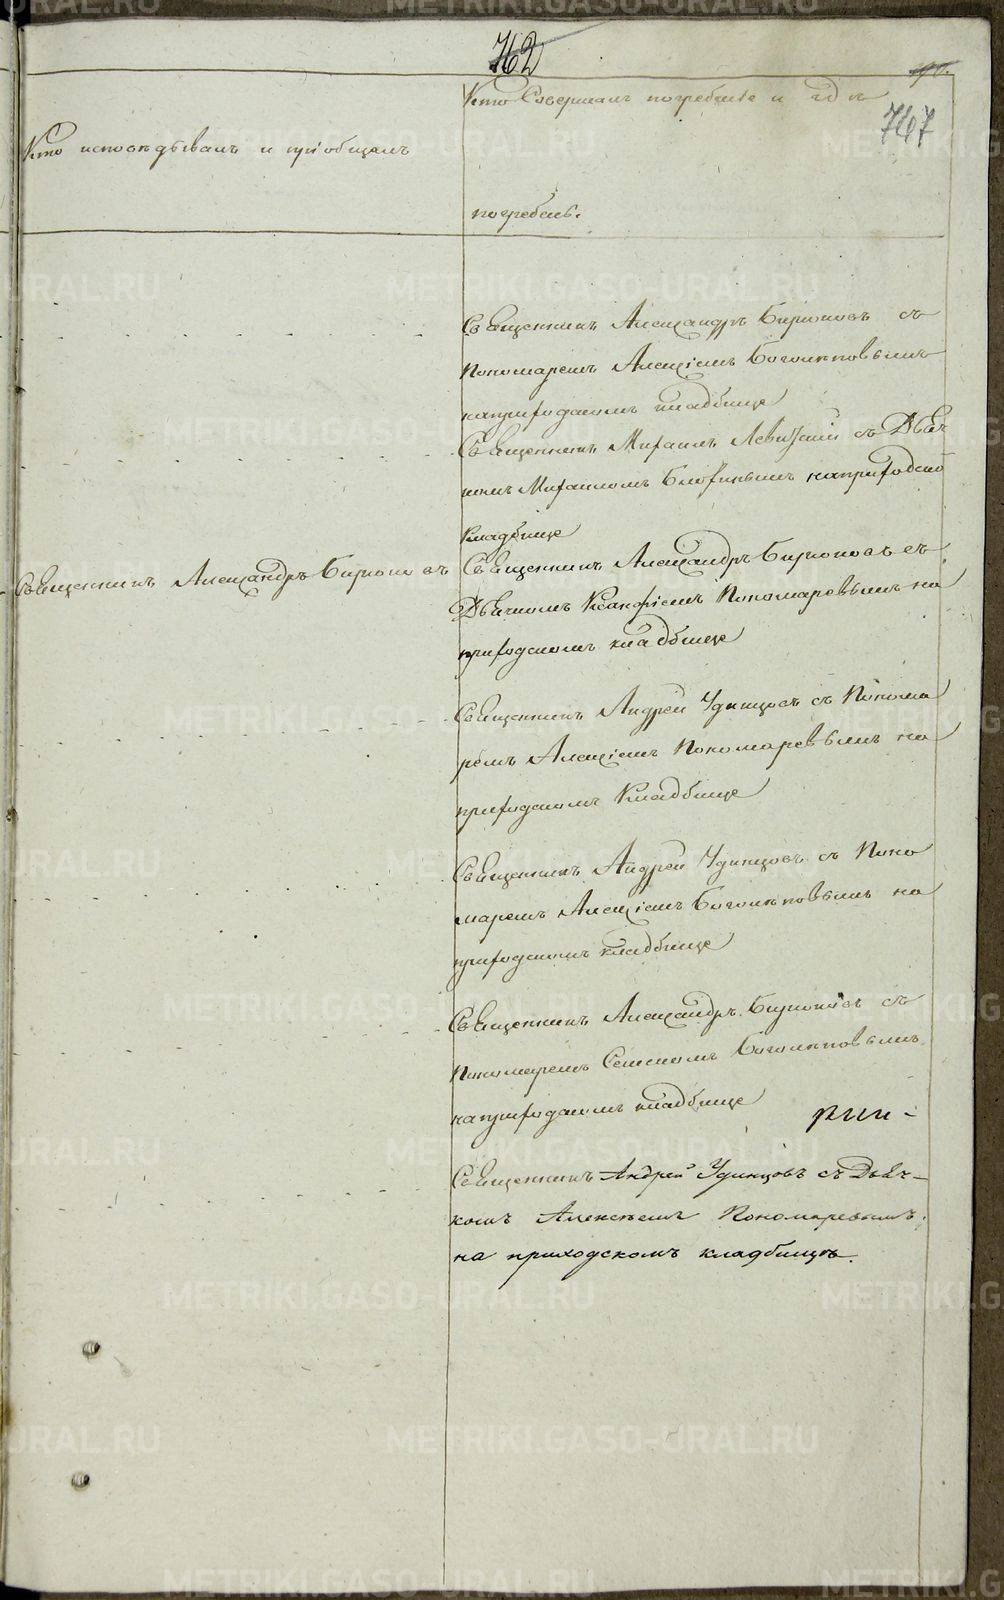 762
747
Кто исповѣдывалъ и приобщалъ
Кто Совершалъ погребенiе и гдѣ
погребенъ.
Священникъ Александръ Бирюковъ съ
Пономаремъ Алексiемъ Боголѣповымъ
наприходскомъ кладбище
Священникъ Михаилъ Левитскiй съ Дьяч
комъ Михаиломъ наприходском
Кладбище
Священникъ Александръ Бирюковъ
Священникъ Александръ Бирюковъ съ
Дьячкомъ Пономаревымъ на
приходскомъ кладбище
Священникъ Андрей Удинцовъ съ Понома
ремъ Алексiемъ Пономаревымъ на
приходскомъ Кладбище
Священникъ Андрей Удинцовъ съ Поно
маремъ Алексiемъ Боголѣповымъ на
приходскомъ кладбище
Священникъ Александръ Бирюковъ съ
Пономаремъ Семеномъ Боголѣповымъ
наприходскомъ кладбище
Священникъ Андрей Удинцовъ съ Дьяч-
комъ Алексѣемъ Пономаревымъ
на приходскомъ кладбищѣ.
METRIKI.GASO-URAL.RU